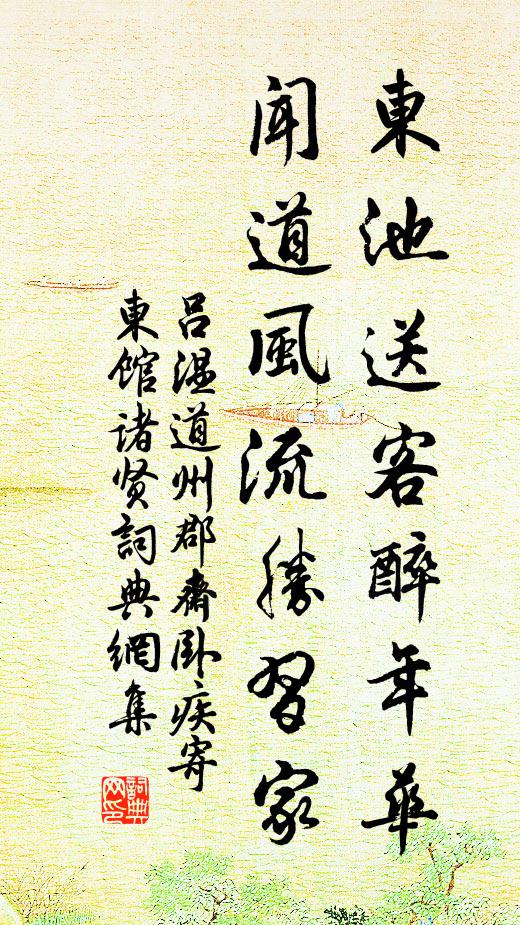 東池送客醉年華
聞道風流勝習家
吕溫道州郡齋卧疾寄
東館诸贤詞典網集
詞典
网印